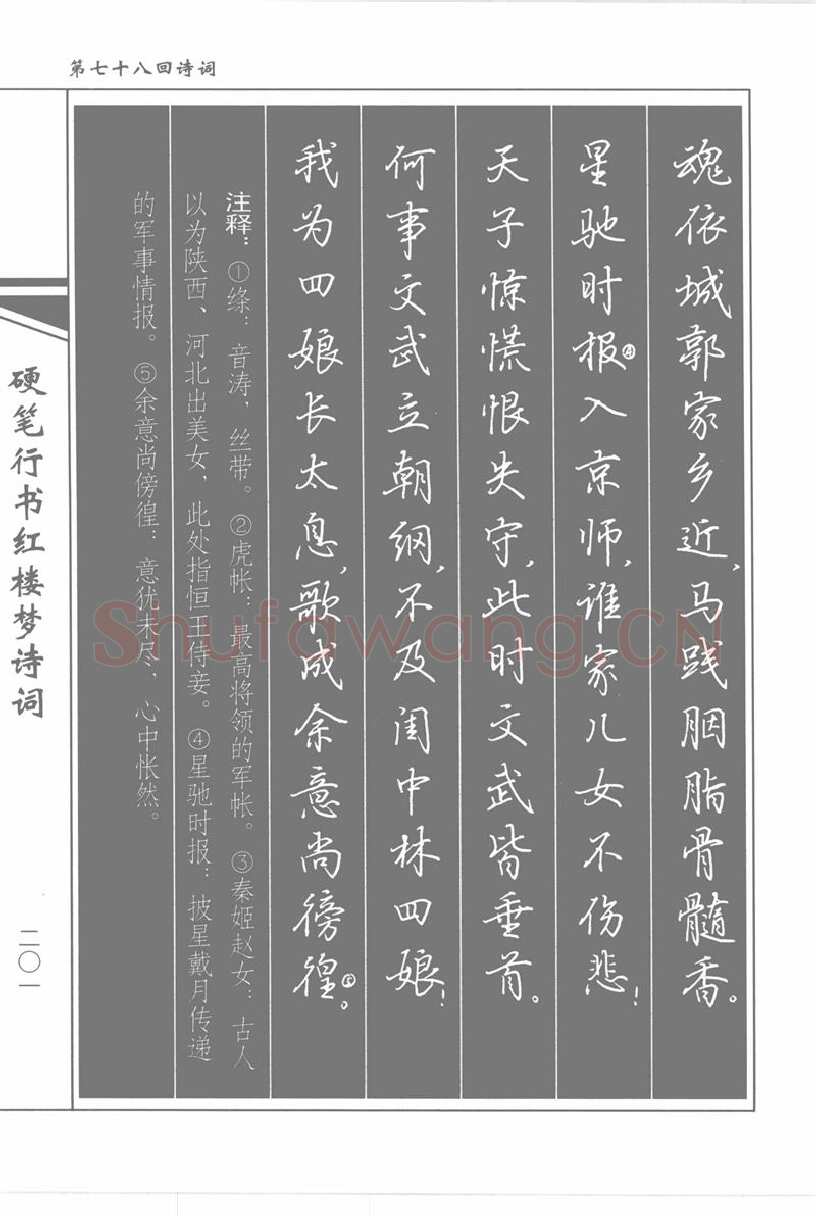 第七十八回诗词
魂依城郭家乡近，马践胭脂骨髓香。
星驰时报④入京师，谁家儿女不伤悲！
天子惊慌恨失守，此时文武皆垂首。
何事文武立朝纲，不及闺中林四娘！
我为四娘长太息，歌成余意尚徬徨⑤。
注释：①绦：音涛，丝带。②虎帐：最高将领的军帐。③秦姬赵女：古人
以为陕西、河北出美女，此处指恒王侍妾。④星驰时报：披星戴月传递
的军事情报。⑤余意尚傍徨：意犹未尽，心中怅然。
硬笔行书红楼梦诗词
二〇一
Shufawang.CN